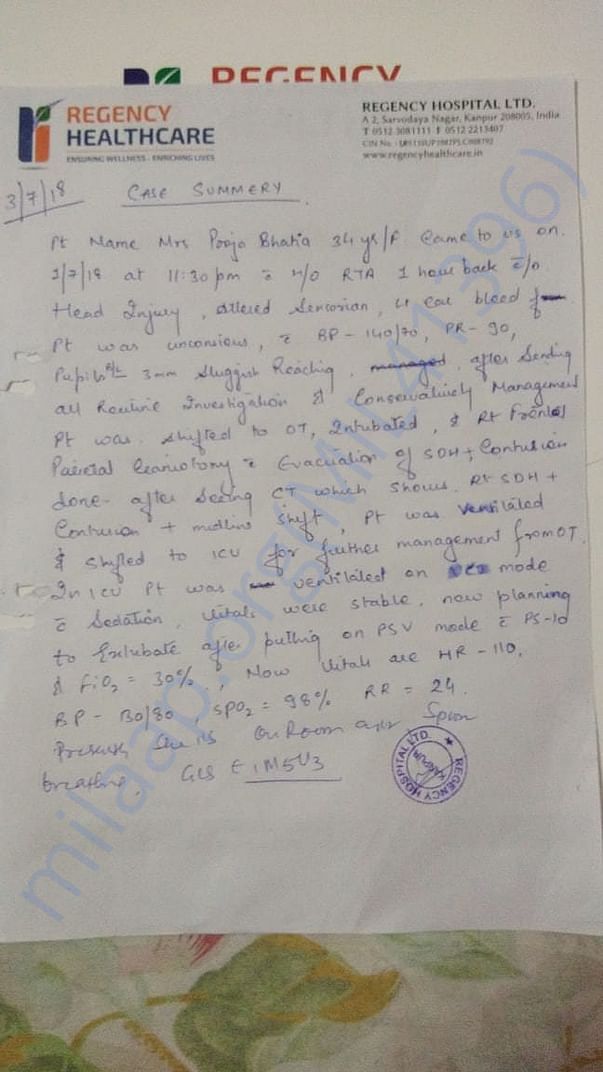 REGENCY
REGENCY
HEALTHCARE
ENSURING WELLNESS - ENRICHING LIVES
REGENCY HOSPITAL LTD.
A 2, Sarvodaya Nagar, Kanpur 208005, India
T 0512 3081111 F 0512 2213407
www.regencyhealthcare.in
3/7/18
CASE SUMMERY
Pt Name Mrs Pooja Bhatia 34 yrs/F came to us on.
1/7/18 at 11:30 pm c̄ H/O RTA 1 hour back c/o
Head Injury, altered Sensorian, ear bleed
Pt was unconsious, c̄ BP - 140/70, PR - 90,
Pupils B/L 3mm Sluggish Reacting, managed, after Sending
all Routine Investigation & Conservatively Management
Pt was shifted to OT, Intubated, & Rt Frontal
Parietal Craniotomy c̄ Evacuation of SDH + Contusion
done after Seeing CT which shows Rt SDH +
Contusion + midline shift, Pt was ventilated
& shifted to ICU for further management from OT.
In ICU Pt was ventilated on mode
c̄ Sedation, vitals were stable, now planning
to Extubate after putting on PSV mode c̄ PS-10
& FiO2 = 30%, Now vitals are HR - 110,
BP - 130/80, SPO2 = 98% RR = 24.
She is On Room air Spon
breathing. GCS E1M5V3
REGENCY HOSPITAL LTD.
KANPUR
milaap.org(MIL41396)